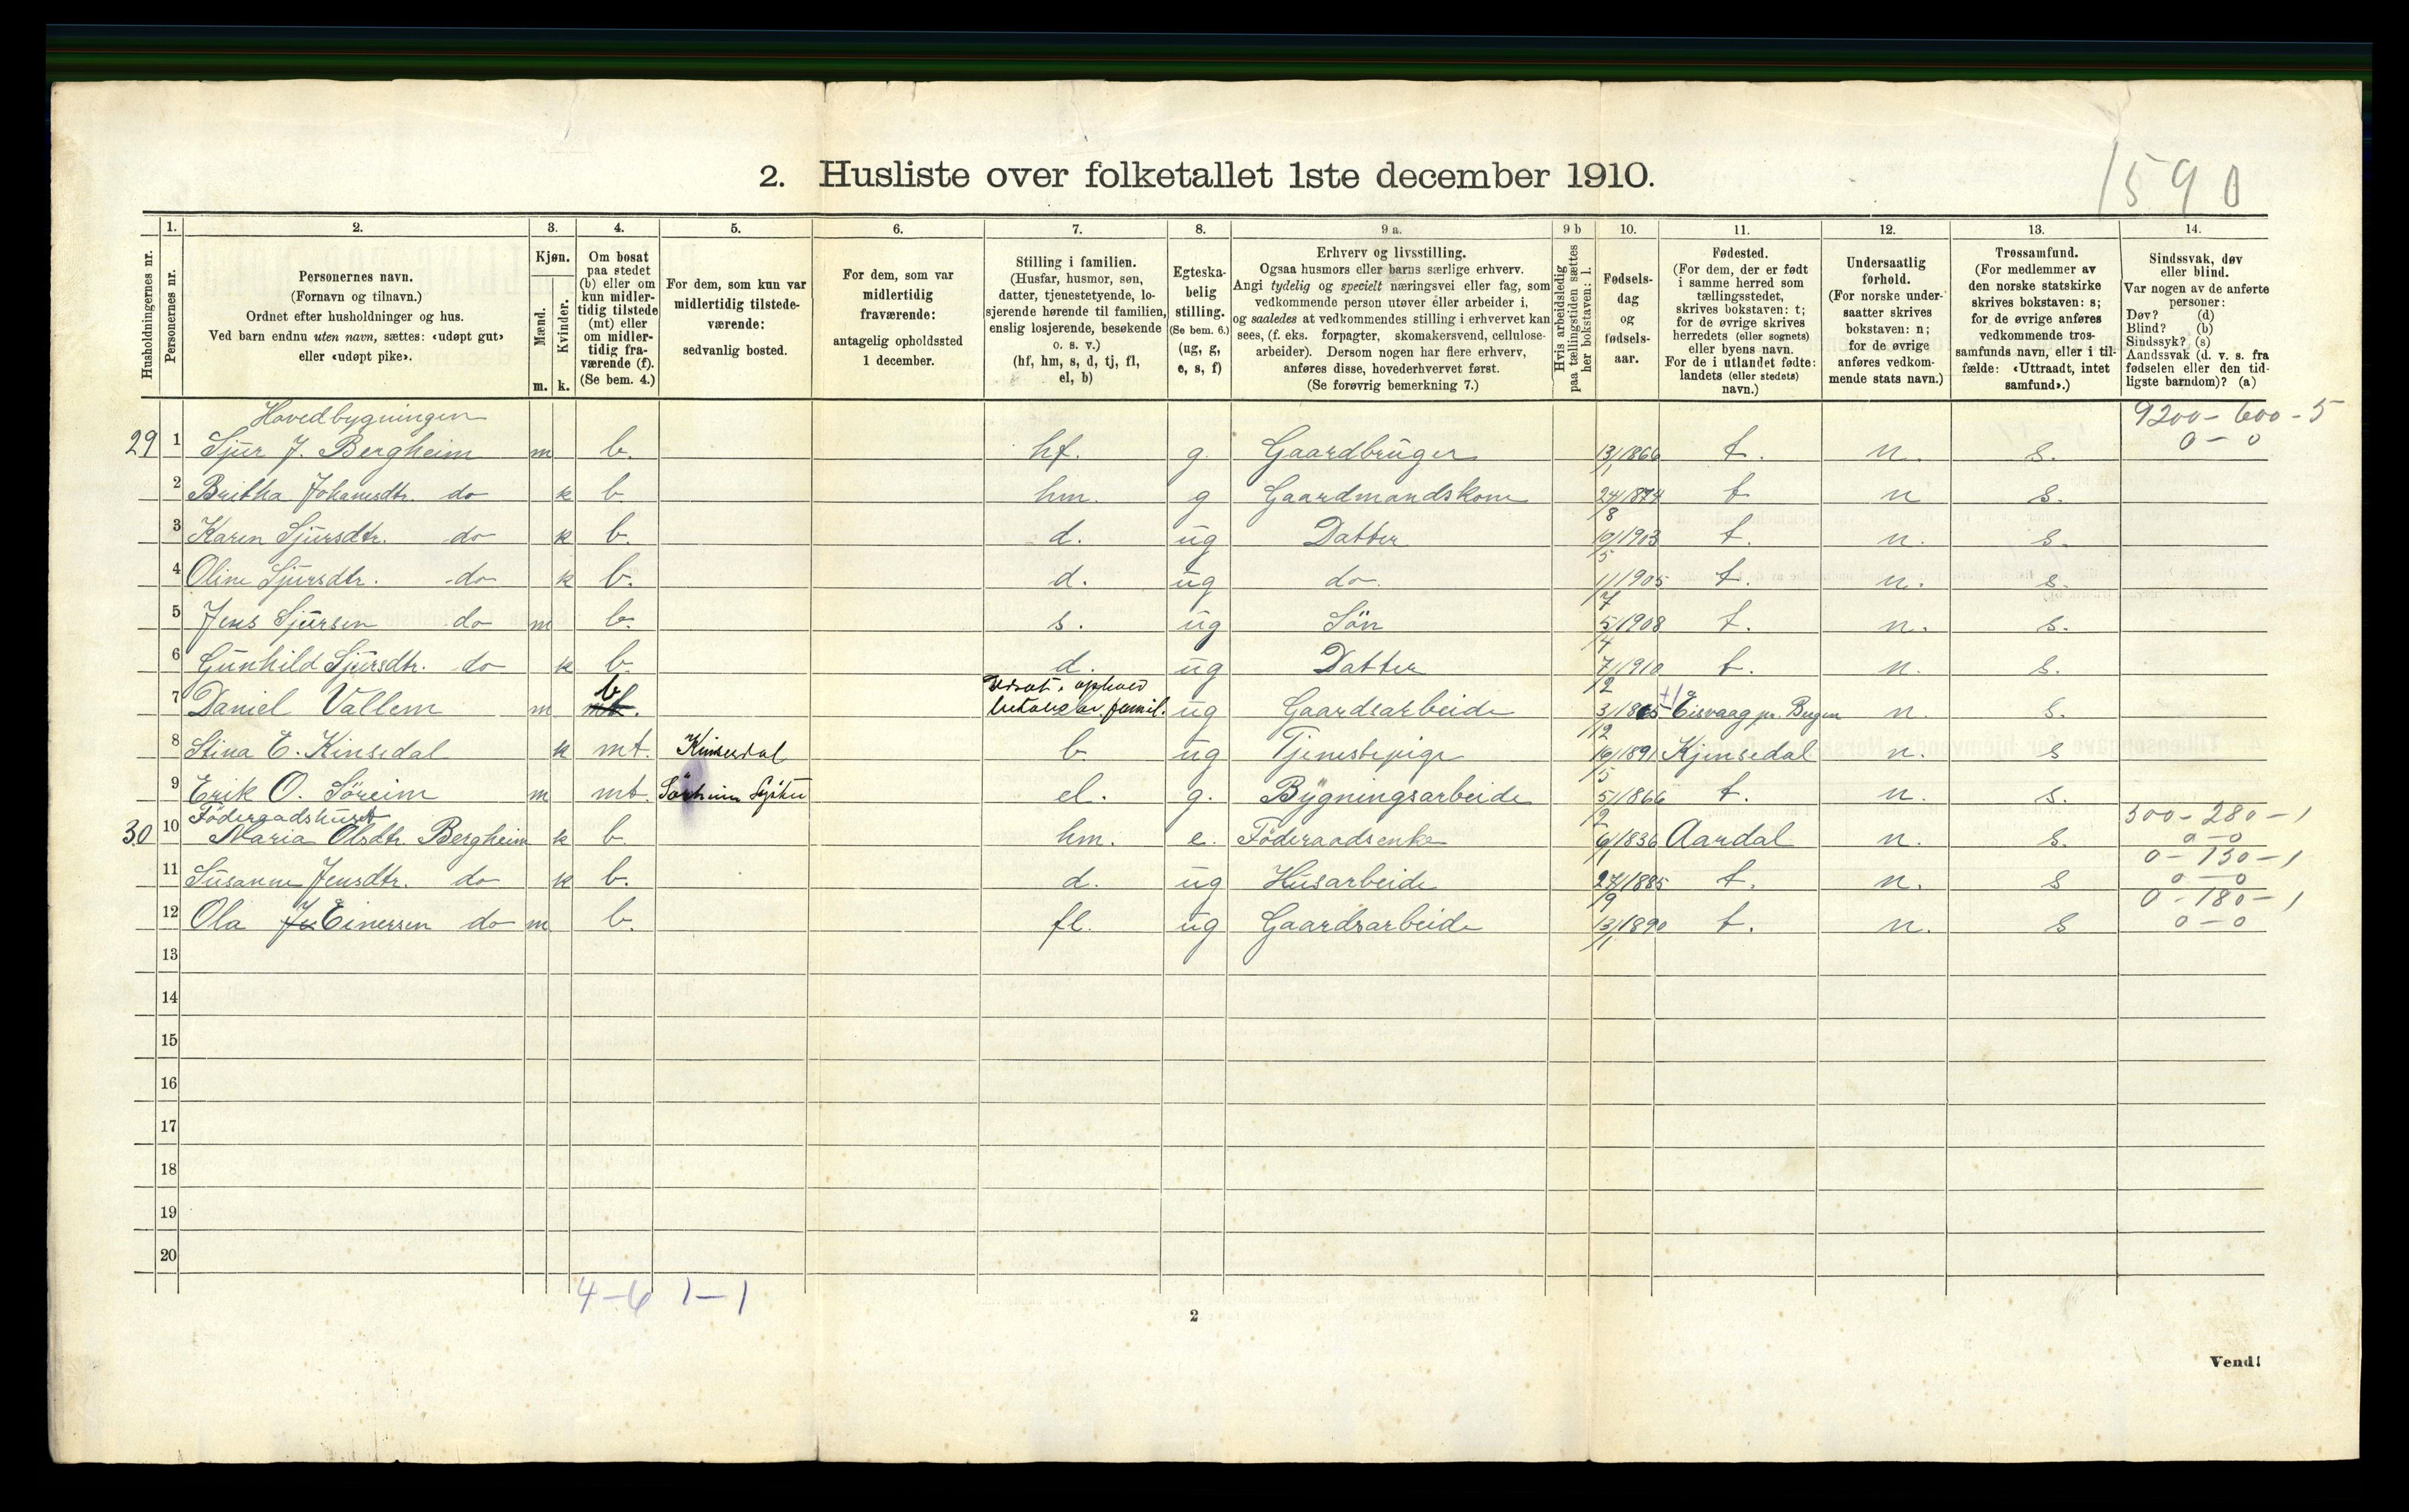 1590
2. Husliste over folketallet 1ste december 1910.
Husholdningernes nr.
1. Personernes nr.
2. Personernes navn.
(Fornavn og tilnavn.)
Ordnet efter husholdninger og hus.
Ved barn endnu uten navn, sættes: «udøpt gut»
eller «udøpt pike».
3. Kjøn.
Mænd. m.
Kvinder. k.
4. Om bosat
paa stedet
(b) eller om
kun midler-
tidig tilstede
(mt) eller
om midler-
tidig fra-
værende (f).
(Se bem. 4.)
5. For dem, som kun var
midlertidig tilstede-
værende:
sedvanlig bosted.
6. For dem, som var
midlertidig
fraværende:
antagelig opholdssted
1 december.
7. Stilling i familien.
(Husfar, husmor, søn,
datter, tjenestetyende, lo-
sjerende hørende til familien,
enslig losjerende, besøkende
o. s. v.)
(hf, hm, s, d, tj, fl,
el, b)
8. Egteska-
belig
stilling.
(Se bem. 6.)
(ug, g,
e, s, f)
9 a. Erhverv og livsstilling.
Ogsaa husmors eller barns særlige erhverv.
Angi tydelig og specielt næringsvei eller fag, som
vedkommende person utøver eller arbeider i,
og saaledes at vedkommendes stilling i erhvervet kan
sees, (f. eks. forpagter, skomakersvend, cellulose-
arbeider). Dersom nogen har flere erhverv,
anføres disse, hovederhvervet først.
(Se forøvrig bemerkning 7.)
9 b Hvis arbeidsledig
paa tællingstiden sættes
her bokstaven: l.
10. Fødsels-
dag
og
fødsels-
aar.
11. Fødested.
(For dem, der er født
i samme herred som
tællingsstedet,
skrives bokstaven: t;
for de øvrige skrives
herredets (eller sognets)
eller byens navn.
For de i utlandet fødte:
landets (eller stedets)
navn.)
12. Undersaatlig
forhold.
(For norske under-
saatter skrives
bokstaven: n;
for de øvrige
anføres vedkom-
mende stats navn.)
13. Trossamfund.
(For medlemmer av
den norske statskirke
skrives bokstaven: s;
for de øvrige anføres
vedkommende tros-
samfunds navn, eller i til-
fælde: «Uttraadt, intet
samfund».)
14. Sindssvak, døv
eller blind.
Var nogen av de anførte
personer:
Døv? (d)
Blind? (b)
Sindssyk? (s)
Aandssvak (d. v. s. fra
fødselen eller den tid-
ligste barndom)? (a)
Hovedbygningen 9200 - 600 - 5
29 1 Sjur J. Bergheim m b. hf. g. Gaardbruger 13/1 1866 t. n. s. 0 - 0
2 Britha Johansdtr. do k b hm. g Gaardmandskone 24/8 1874 t n s.
3 Karen Sjursdtr. do k b. d. ug Datter 10/5 1903 t. n. s.
4 Oline Sjursdtr. do k b. d. ug do 1/7 1905 t. n. s.
5 Jens Sjursen do m b. s. ug Søn 5/4 1908 t. n. s.
6 Gunhild Sjursdtr. do k b d. ug Datter 7/2 1910 t. n. s.
7 Daniel Vallem m mt. b famil. ug Gaardsarbeide 3/12 1865 Eisvaag pr. Bergen n. s.
8 Stina E. Kinsedal k mt. Kinsedal b. ug Tjenestepige 10/5 1891 Kjinsedal n. s
9 Erik O. Søreim m mt. el. g. Bygningsarbeide 5/2 1866 t. n. s.
Föderaadshuset 300 - 280 - 1
30 10 Maria Olsdtr. Bergheim k b. hm. e. Föderaadsenke 6/1 1836 Aardal n. s. 0 - 0
0 - 130 - 1
11 Susanne Jensdtr. do k b. d. ug Husarbeide 24/9 1885 t. n. s 0 - 0
0 - 180 - 1
12 Ola Einersen do m b. fl. ug Gaardsarbeide 13/1 1890 t. n. s 0 - 0
13
14
15
16
17
18
19
20
4 - 6 1 - 1
2
Vend!